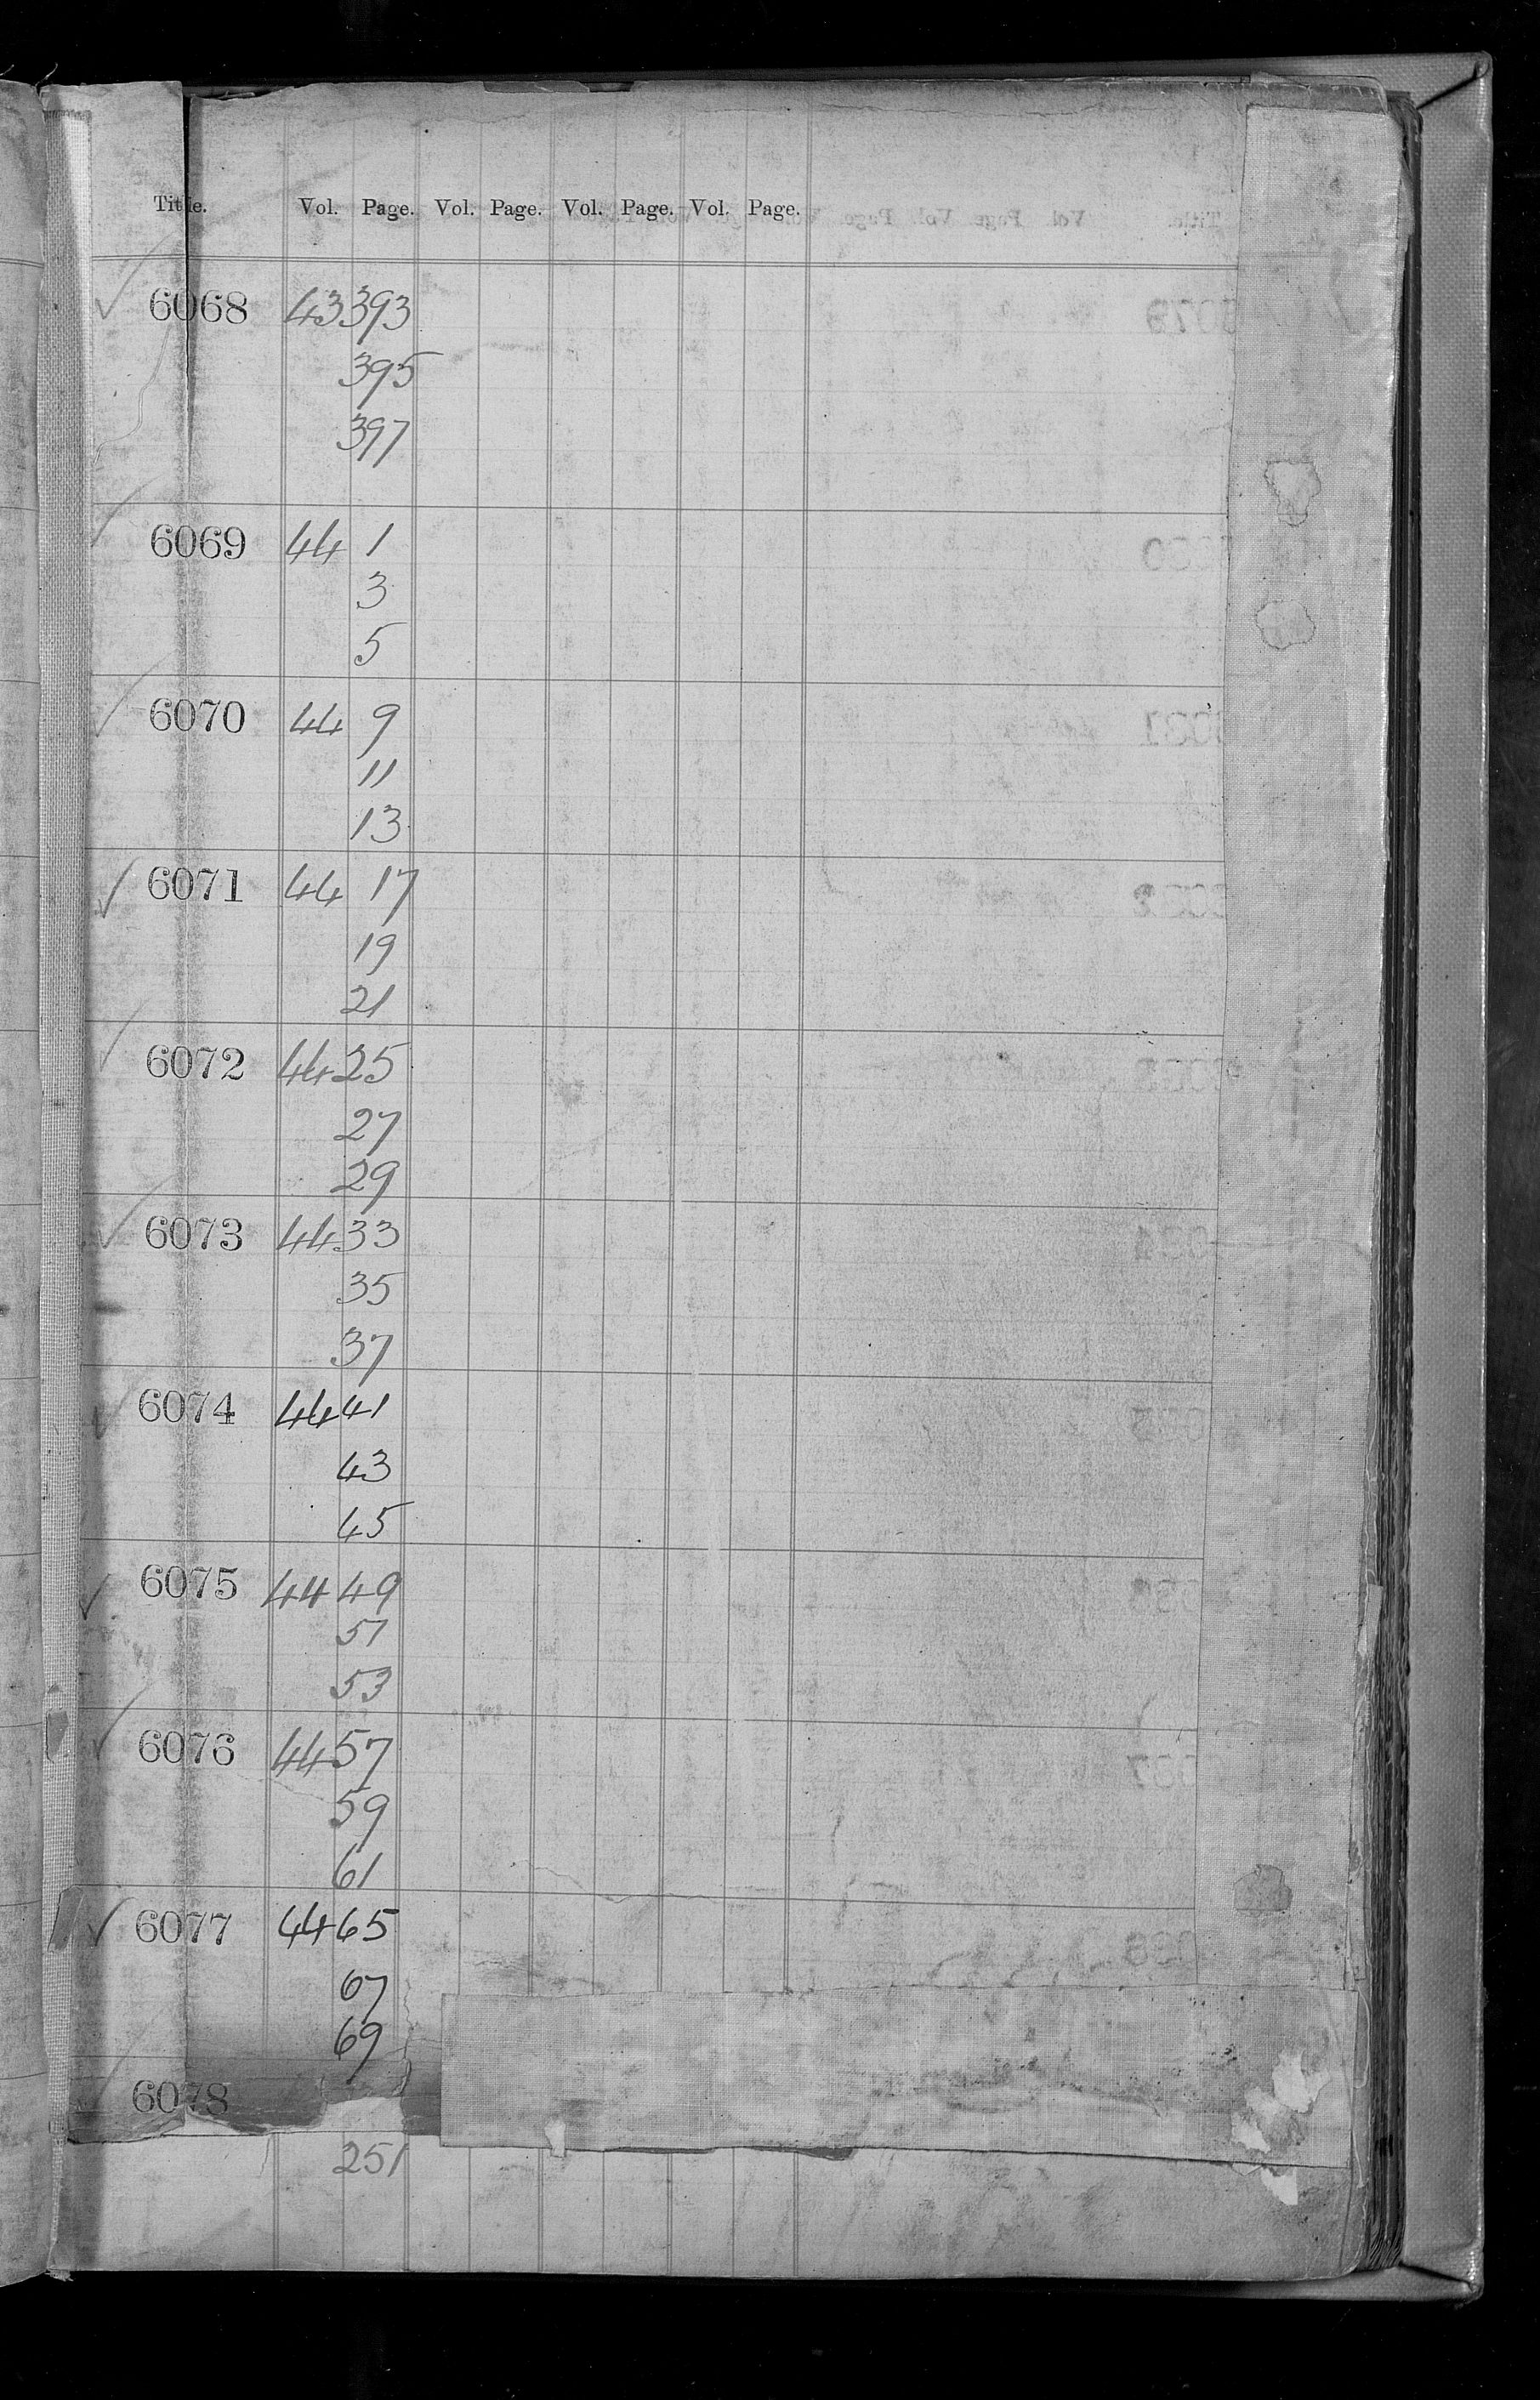 Title. Vol. Page. Vol. Page. Vol. Page. Vol. Page.
6068 43 393
395
397
6069 44 1
3
5
6070 44 9
11
13
6071 44 17
19
21
6072 44 25
27
29
6073 44 33
35
37
6074 44 41
43
45
6075 44 49
51
53
6076 44 57
59
61
6077 44 65
67
69
6078
251